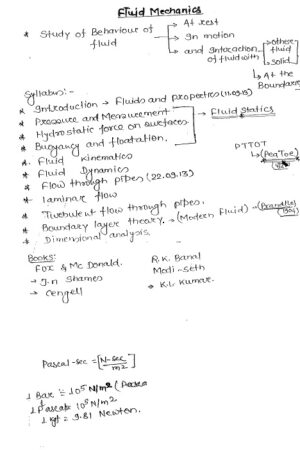 Fluid Mechanics
* Study of Behaviour of fluid
→ At rest
→ In motion
→ and Interaction of fluid with
→ other fluid
→ Solid
↳ At the Boundaries
Syllabus:-
* Introduction → Fluids and properties
* Pressure and Measurement
* Hydrostatic force on surfaces
* Buoyancy and floatation.
→ Fluid Statics
* Fluid kinematics
* Fluid Dynamics
* Flow through pipes (22.09.13)
* laminar flow
* Turbulent flow through pipes.
* Boundary layer theory. → (Modern Fluid) →
* Dimensional analysis.
PTTOT
Books:
Fox & Mc Donald.
→ I.n Shames
→ Cengell
R.K. Bansal
Modi-Seth
K.L. Kumar.
Pascal-sec = [N-sec/m²]
1 Bar = 10⁵ N/m²
1 Pascal = 10⁵ N/m²
1 kgf = 9.81 Newton.